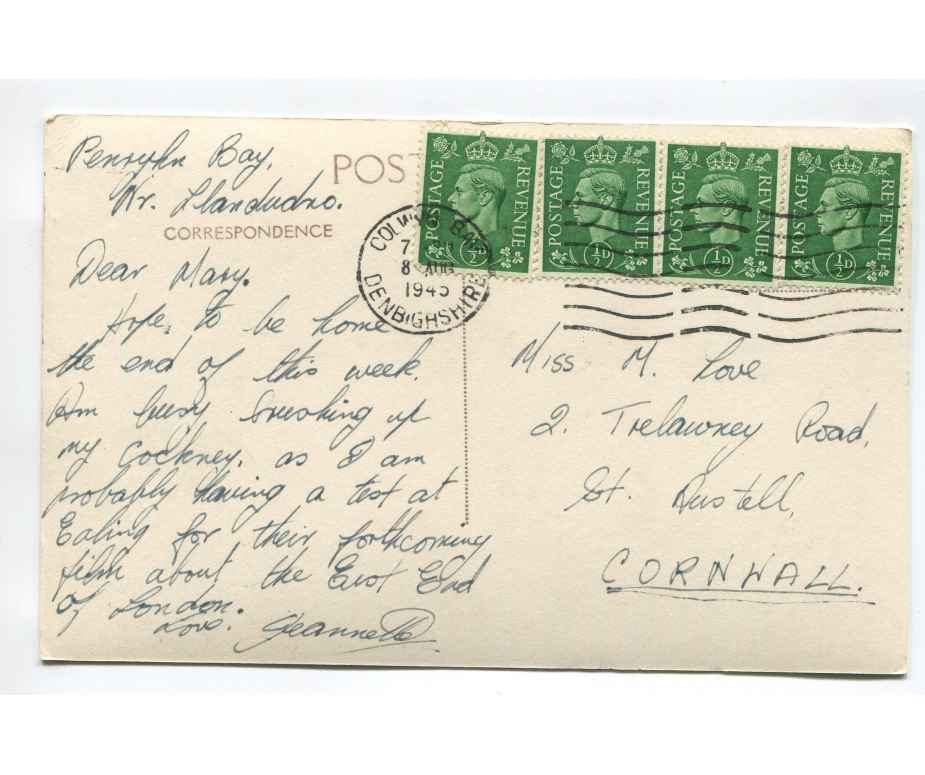 Penryhn Bay,
Nr. Llandudno.
POST
CORRESPONDENCE
Dear Mary.
Hope, to be home
the end of this week.
Am busy brushing up
my cockney, as I am
probably having a test at
Ealing for their forthcoming
film about the East End
of London.
Love. Jeannette
POSTAGE REVENUE ½D
POSTAGE REVENUE ½D
POSTAGE REVENUE ½D
POSTAGE REVENUE ½D
COLWYN BAY
8 AUG
1945
DENBIGHSHIRE
Miss M. Love
2. Trelawney Road,
St. Austell,
CORNWALL.